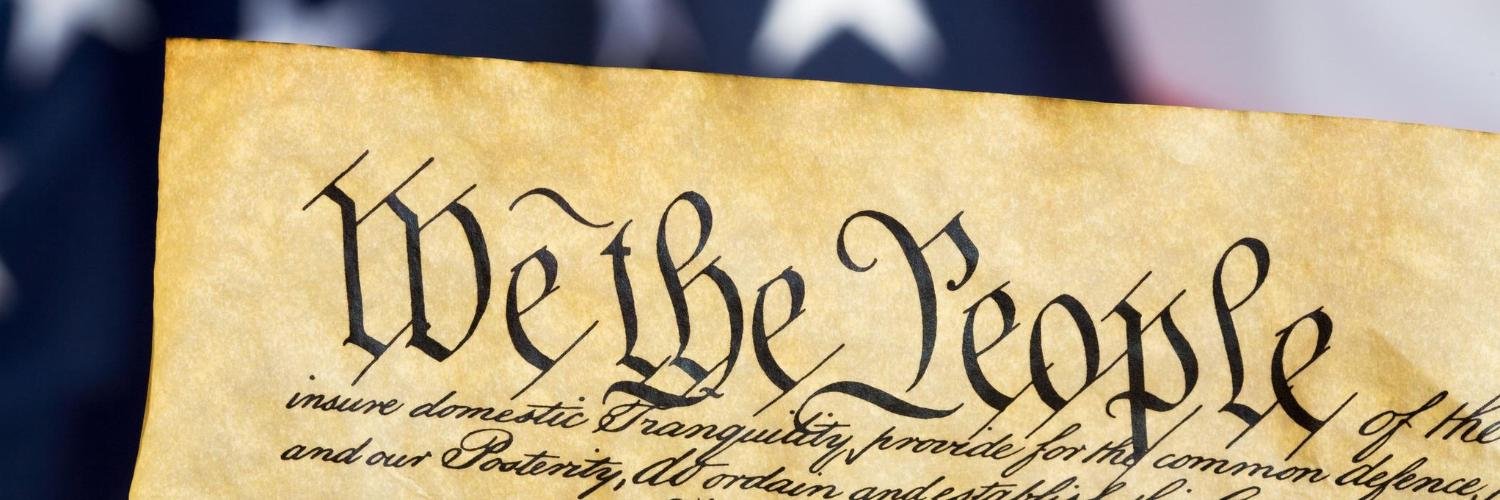 We the People of the
insure domestic Tranquility, provide for the common defence,
and our Posterity, do ordain and establish